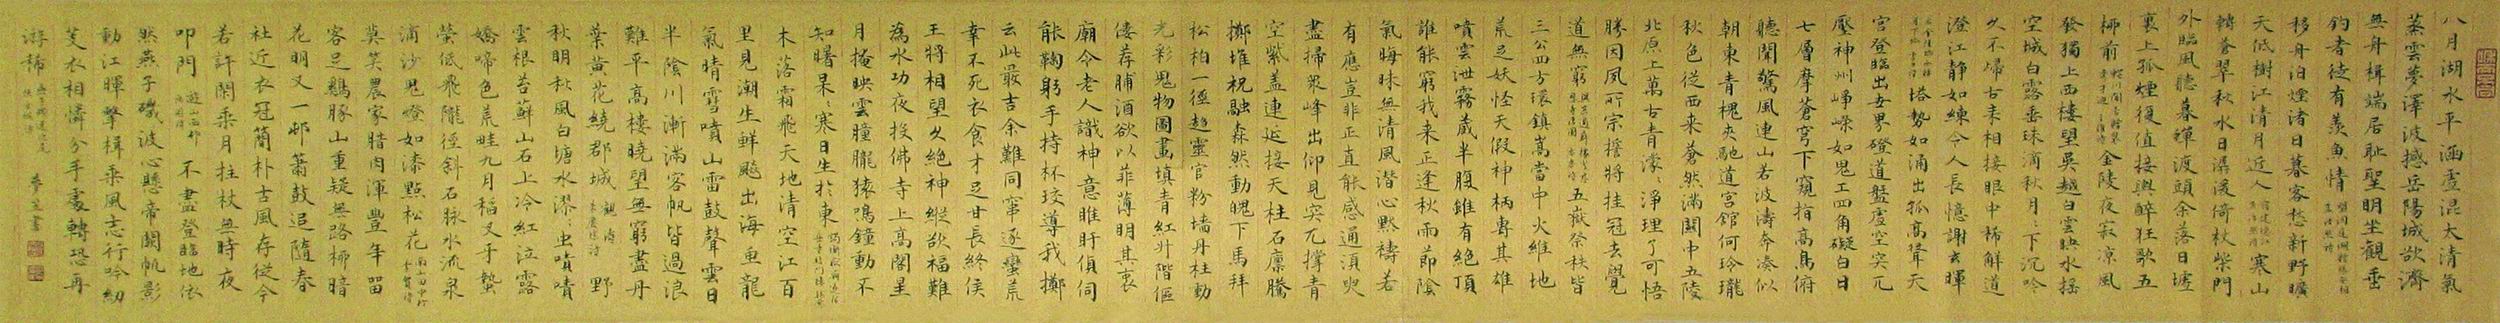 八月湖水平涵虛混太清氣
蒸雲夢澤波撼岳陽城欲濟
無舟楫端居恥聖明坐觀垂
釣者徒有羨魚情 孟浩然詩
移舟泊煙渚日暮客愁新野曠
天低樹江清月近人 宿建德江 孟浩然詩 寒山
轉蒼翠秋水日潺湲倚杖柴門
外臨風聽暮蟬渡頭余落日墟
裏上孤煙復值接輿醉狂歌五
柳前 輞川閒居贈裴秀才迪 王維詩 金陵夜寂涼風
發獨上西樓望吳越白雲映水搖
空城白露垂珠滴秋月〻下沉吟
久不歸古來相接眼中稀解道
澄江靜如練令人長憶謝玄暉
金陵城西樓月下吟 李白詩 塔勢如涌出孤高聳天
宮登臨出世界磴道盤虛空突兀
壓神州崢嶸如鬼工四角礙白日
七層摩蒼穹下窺指高鳥俯
聽聞驚風連山若波濤奔湊似
朝東青槐夾馳道宮館何玲瓏
秋色從西來蒼然滿關中五陵
北原上萬古青濛〻淨理了可悟
勝因夙所宗誓將挂冠去覺
道無窮 岑參詩 五嶽祭秩皆
三公四方環鎮嵩當中火維地
荒足妖怪天假神柄專其雄
噴雲泄霧藏半腹雖有絕頂
誰能窮我來正逢秋雨節陰
氣晦昧無清風潛心默禱若
有應豈非正直能感通須臾
盡掃眾峰出仰見突兀撐青
空紫蓋連延接天柱石廩騰
擲堆祝融森然動魄下馬拜
松柏一徑趨靈宮粉墻丹柱動
光彩鬼物圖畫填青紅升階傴
僂荐脯酒欲以菲薄明其衷
廟令老人識神意睢盱偵伺
能鞠躬手持杯珓導我擲
云此最吉余難同竄逐蠻荒
幸不死衣食才足甘長終侯
王將相望久絕神縱欲福難
為水功夜投佛寺上高閣星
月掩映雲瞳朧猿鳴鐘動不
知曙杲〻寒日生於東
木落霜飛天地清空江百
里見潮生鮮飈出海魚龍
氣晴雪噴山雷鼓聲雲日
半陰川漸滿客帆皆過浪
難平高樓曉望無窮盡丹
葉黃花繞郡城 觀潮 朱慶餘詩 野
秋明秋風白塘水漻〻虫嘖嘖
雲根苔蘚山石上冷紅泣露
嬌啼色荒畦九月稻叉牙蟄
螢低飛隴徑斜石脉水流泉
滴沙鬼燈如漆點松花 南山田中行 李賀詩
莫笑農家腊肉渾豐年留
客足鷄豚山重疑無路柳暗
花明又一邨簫鼓追隨春
社近衣冠簡朴古風存從今
若許閒乘月拄杖無時夜
叩門 遊山西邨 陸游詩 不盡登臨地依
然燕子磯波心懸帝闕帆影
動江暉擊楫乘風志行吟紉
芰衣相憐分手處轉恐再
游稀